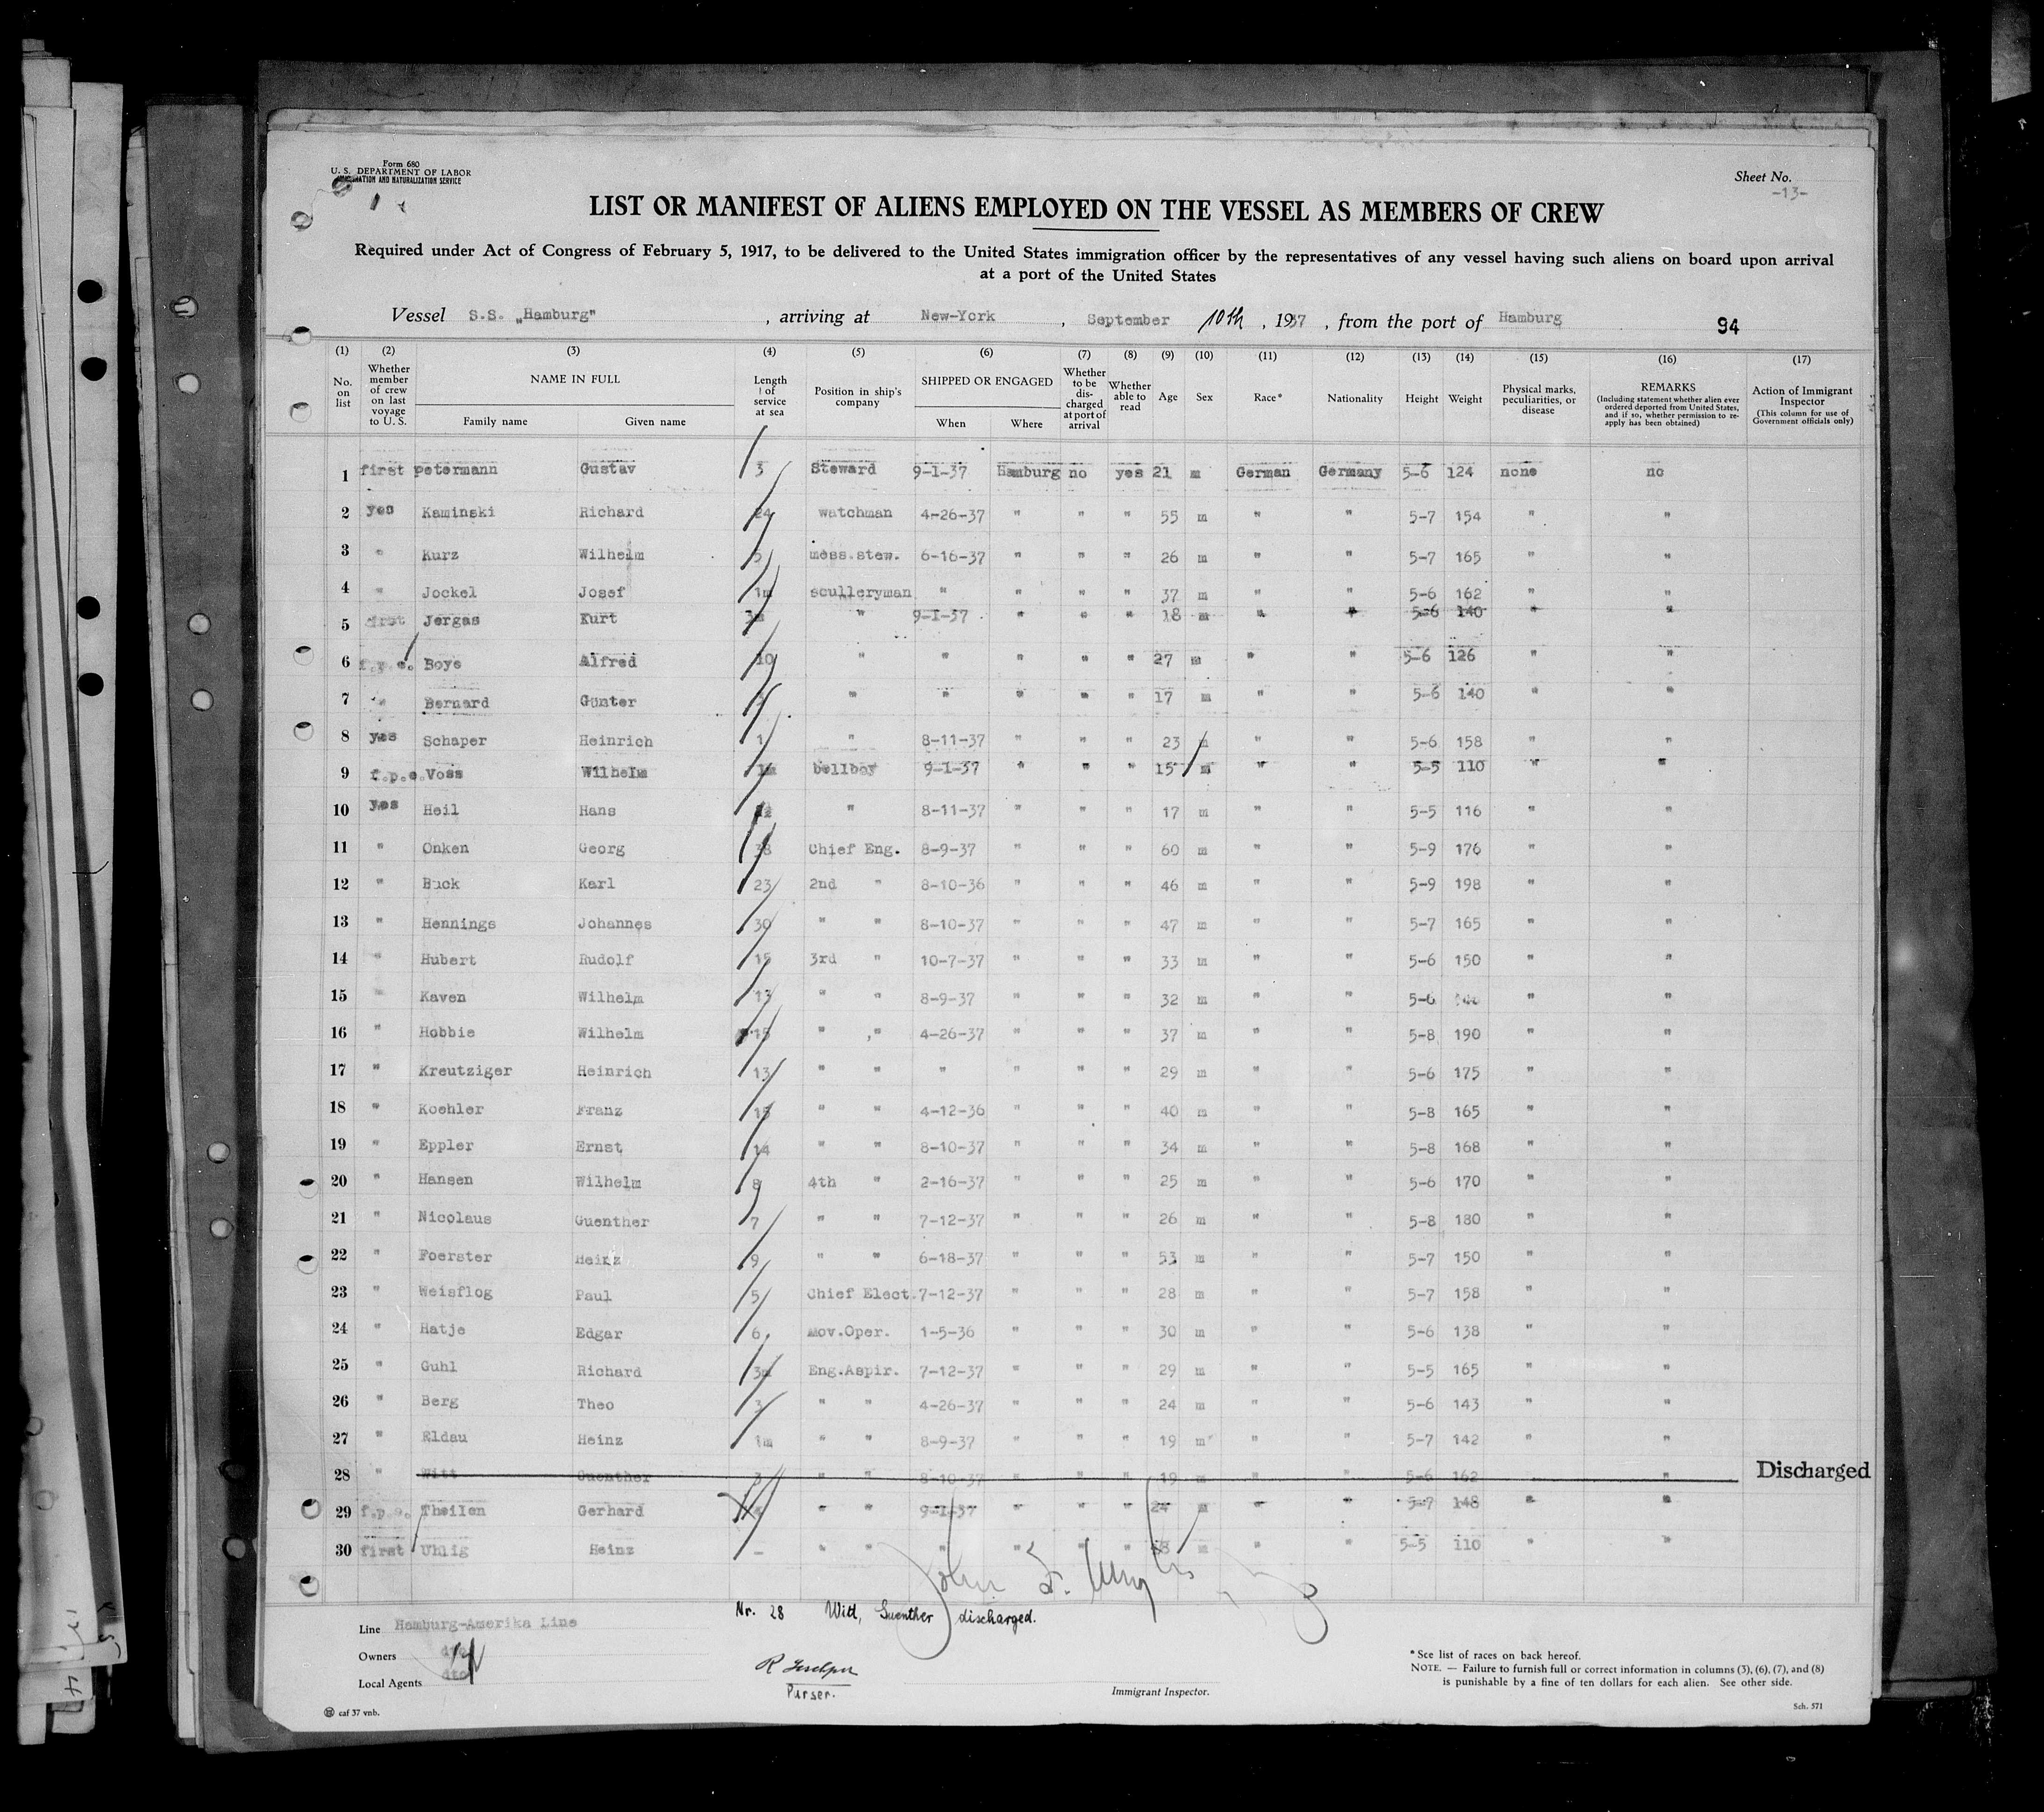 Form 680
U. S. DEPARTMENT OF LABOR
IMMIGRATION AND NATURALIZATION SERVICE
Sheet No.
-13-
LIST OR MANIFEST OF ALIENS EMPLOYED ON THE VESSEL AS MEMBERS OF CREW
Required under Act of Congress of February 5, 1917, to be delivered to the United States immigration officer by the representatives of any vessel having such aliens on board upon arrival
at a port of the United States
Vessel S.S. „Hamburg" , arriving at New-York , September 10th , 1937 , from the port of Hamburg 94
(1) (2) (3) (4) (5) (6) (7) (8) (9) (10) (11) (12) (13) (14) (15) (16) (17)
No. on list Whether member of crew on last voyage to U. S. NAME IN FULL Family name Given name Length of service at sea Position in ship's company SHIPPED OR ENGAGED When Where Whether to be discharged at port of arrival Whether able to read Age Sex Race* Nationality Height Weight Physical marks, peculiarities, or disease REMARKS (Including statement whether alien ever ordered deported from United States, and if so, whether permission to re-apply has been obtained) Action of Immigrant Inspector (This column for use of Government officials only)
1 first petermann Gustav 3 Steward 9-1-37 Hamburg no yes 21 m German Germany 5-6 124 none no
2 yes Kaminski Richard 24 watchman 4-26-37 " " " 55 m " " 5-7 154 " "
3 " Kurz Wilhelm 5 mess.stew. 6-16-37 " " " 26 m " " 5-7 165 " "
4 " Jockel Josef 1m sculleryman " " " " 37 m " " 5-6 162 " "
5 first Jergas Kurt " 9-1-37 " " " 18 m " " 5-6 140 " "
6 f.p.e. Boye Alfred 10 " " " " " 27 m " " 5-6 126 " "
7 " Bernard Günter " " " " " 17 m " " 5-6 140 " "
8 yes Schaper Heinrich 1 " 8-11-37 " " " 23 m " " 5-6 158 " "
9 f.p.e. Voss Wilhelm bellboy 9-1-37 " " " 15 m " " 5-5 110 " "
10 yes Heil Hans " 8-11-37 " " " 17 m " " 5-5 116 " "
11 " Onken Georg 38 Chief Eng. 8-9-37 " " " 60 m " " 5-9 176 " "
12 " Buck Karl 23 2nd " 8-10-36 " " " 46 m " " 5-9 198 " "
13 " Hennings Johannes 30 " " 8-10-37 " " " 47 m " " 5-7 165 " "
14 " Hubert Rudolf 15 3rd " 10-7-37 " " " 33 m " " 5-6 150 " "
15 " Kaven Wilhelm 13 " " 8-9-37 " " " 32 m " " 5-6 " "
16 " Hobbie Wilhelm 15 " " 4-26-37 " " " 37 m " " 5-8 190 " "
17 " Kreutziger Heinrich 13 " " " " " " 29 m " " 5-6 175 " "
18 " Koehler Franz 15 " " 4-12-36 " " " 40 m " " 5-8 165 " "
19 " Eppler Ernst 14 " " 8-10-37 " " " 34 m " " 5-8 168 " "
20 " Hansen Wilhelm 8 4th " 2-16-37 " " " 25 m " " 5-6 170 " "
21 " Nicolaus Guenther 7 " " 7-12-37 " " " 26 m " " 5-8 180 " "
22 " Foerster Heinz 9 " " 6-18-37 " " " 53 m " " 5-7 150 " "
23 " Weisflog Paul 5 Chief Elect. 7-12-37 " " " 28 m " " 5-7 158 " "
24 " Hatje Edgar 6 Mov.Oper. 1-5-36 " " " 30 m " " 5-6 138 " "
25 " Guhl Richard 3m Eng.Aspir. 7-12-37 " " " 29 m " " 5-5 165 " "
26 " Berg Theo 3 " " 4-26-37 " " " 24 m " " 5-6 143 " "
27 " Eldau Heinz 1m " " 8-9-37 " " " 19 m " " 5-7 142 " "
28 " Witt Guenther 3 " " 8-10-37 " " " 19 m " " 5-6 162 " " Discharged
29 f.p.e. Theilen Gerhard " " 9-1-37 " " " 24 m " " 5-7 148 " "
30 first Uhlig Heinz - " " " " " " 18 m " " 5-5 110 " "
Nr. 28 Witt, Guenther discharged.
Line Hamburg-Amerika Line
Owners dto
Local Agents dto
Purser.
Immigrant Inspector.
* See list of races on back hereof.
NOTE. — Failure to furnish full or correct information in columns (3), (6), (7), and (8)
is punishable by a fine of ten dollars for each alien. See other side.
caf 37 vnb.
Sch. 571